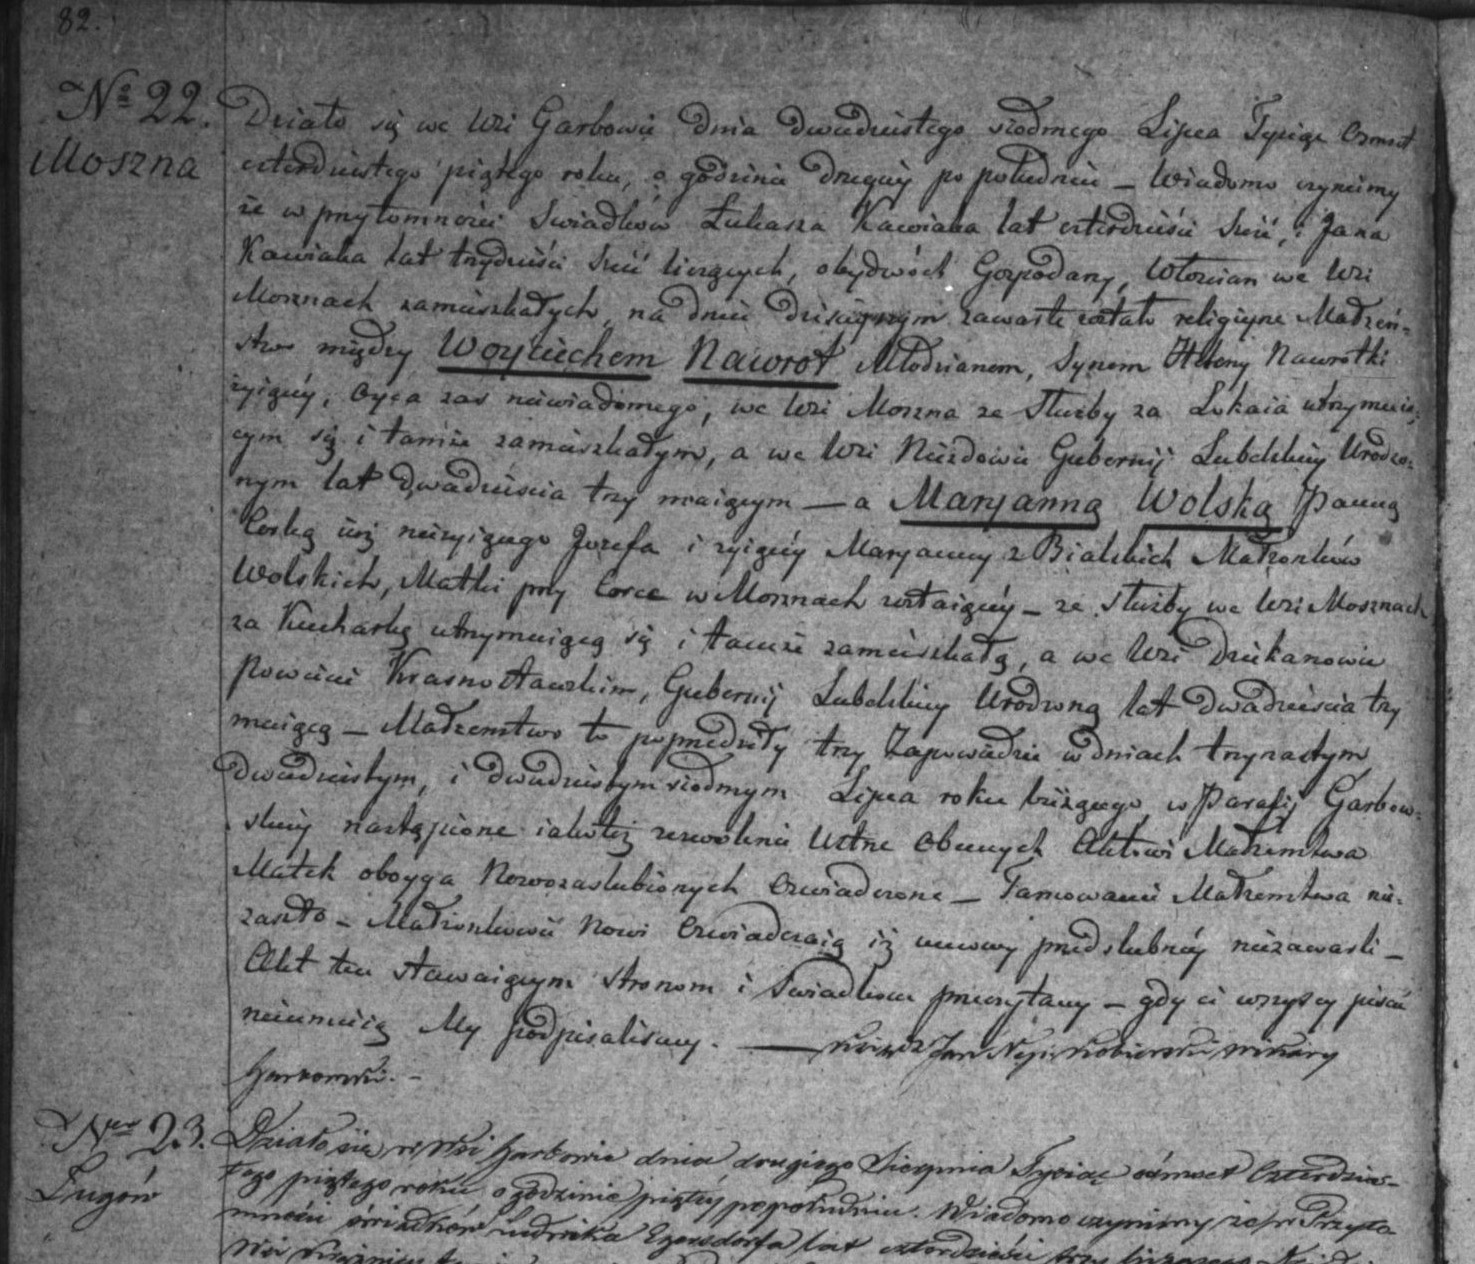 82.
№ 22.
Moszna
Działo się we Wsi Garbowie dnia dwudziestego siodmego Lipca Tysiąc Osmset
czterdziestego piątego roku, o godzinie drugiey po południu — Wiadomo czyniemy
że w przytomności Swiadków Łukasza Kawiaka lat czterdzieści sześć, i Jana
Kawiaka lat trzydzieści sześć liczących, obydwóch Gospodarzy, Włoscian we Wsi
Mosznach zamieszkałych, na dniu dzisieyszym zawarte zostało religiyne Małżeń-
stwo między Woyciechem Nawrot Młodzianem, Synem Heleny Nawrotki
żyiącéy, Oyca zas niewiadomego, we Wsi Moszna ze Służby za Lokaia utrzymuią-
cym się i tamże zamieszkałym, a we Wsi Niezdowie Gubernij Lubelskiey Urodzo-
nym lat dwadzieścia trzy maiącym — a Maryanną Wolską Panną
Corką iuż nieżyiącego Jozefa i żyiącéy Maryanny z Bialskich Małżonków
Wolskich, Matki przy Corce w Mosznach zostaiącéy — ze służby we Wsi Mosznach
za Kucharkę utrzymuiącą się i tamże zamieszkałą, a we Wsi Dziekanowie
Powiecie Krasnostawskim, Gubernij Lubelskiey Urodzoną lat dwadzieścia trzy
maiącą — Małżenstwo to poprzedziły trzy Zapowiedzie w dniach trzynastym,
dwudziestym, i dwudziestym siodmym Lipca roku bieżącego w Parafij Garbow-
skiey nastąpione iakoteż zezwolenie Ustne obecnych Aktowi Małżenstwa
Matek oboyga Nowozaslubionych Oswiadczone — Tamowanie Małżenstwa nie-
zaszło — Małżonkowie Nowi Oswiadczaią iż umowy przedslubnéy niezawarli —
Akt ten stawaiącym stronom i Swiadkom przeczytany — gdy ci wszyscy pisać
nieumieią My podpisalismy. — Ksiądz Jan Kobierski Wikary
Garbowski. —
Ner 23.
Ługów
Działo się w Wsi Garbowie dnia drugiego Sierpnia Tysiąc osmset Czterdzies-
tego piątego roku o godzinie piątéy popołudniu. Wiadomo czynimy że w Przyto-
mności świadków Ludwika Egersdorfa lat czterdzieści trzy